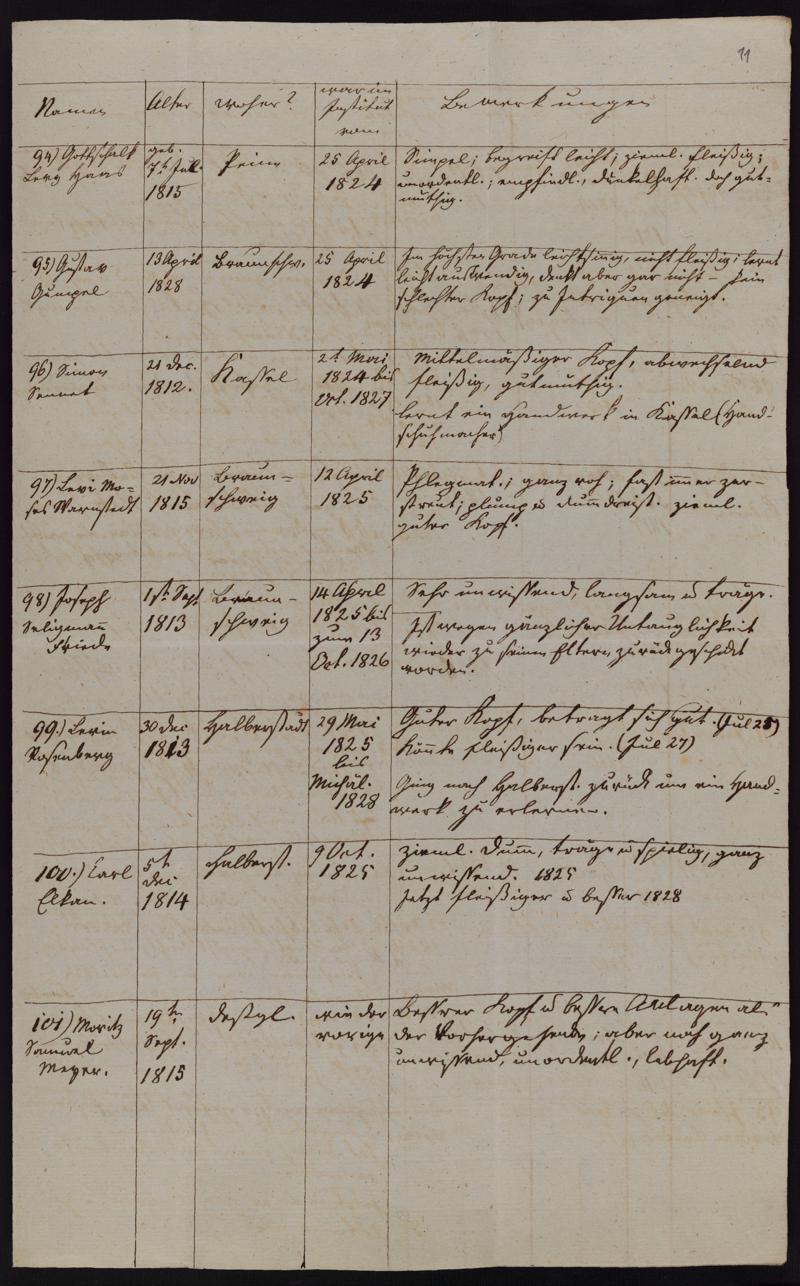 11
Namen
Alter
woher?
war im
Institut
vom
Bemerkungen
94) Gottschalk
Levy Haas
geb.
7t Jul.
1815
Peine
25 April
1824
Simpel; begreift leicht; zieml. fleißig;
unordentl.; empfindl., dünkelhaft. doch gut-
müthig.
95) Gustav
Gumpel
13 April
1828
Braunschw.
25 April
1824
Im höchsten Grade leichtsinnig, nicht fleißig; lernt
leicht auswendig, denkt aber gar nicht – kein
schlechter Kopf; zu Intriguen geneigt.
96) Simon
21 Dec.
1812.
Kassel
2t Mai
1824 bis
Oct. 1827
Mittelmäßiger Kopf, abwechselnd
fleißig, gutmüthig.
lernt ein Handwerk in Kassel (Hand-
schuhmacher)
97) Levi Mo-
ses Warnstedt
21 Nov
1815
Braun-
schweig
12 April
1825
Phlegmat.; ganz roh; fast immer zer-
streut; plump u dummdreist. zieml.
guter Kopf.
98) Joseph
Seligmann
Friede
1t Sept
1813
Braun-
schweig
14 April
1825 bis
zum 13
Oct. 1826
Sehr unwissend, langsam u träge.
Ist wegen gänzlicher Untauglichkeit
wieder zu seinen Eltern zurückgeschickt
worden.
99.) Levin
Rosenberg
30 Dec
1813
Halberstadt
29 Mai
1825
bis
Michäl.
1828
Guter Kopf, betragt sich gut. (Jul 25)
könnte fleißiger sein. (Jul 27)
Ging nach Halberst. zurück um ein Hand-
werk zu erlernen.
100.) Carl
Elkan.
5t
Dec
1814
Halberst.
9 Oct.
1825
zieml. dumm, träge u spielig, ganz
unwissend. 1825
Jetzt fleißiger u besser 1828
101) Moritz
Samuel
Meyer.
19t
Sept.
1815
desgl.
wie der
vorige
Bessrer Kopf u bessere Anlagen als
der Vorhergehende; aber noch ganz
unwissend, unordentl., lebhaft.